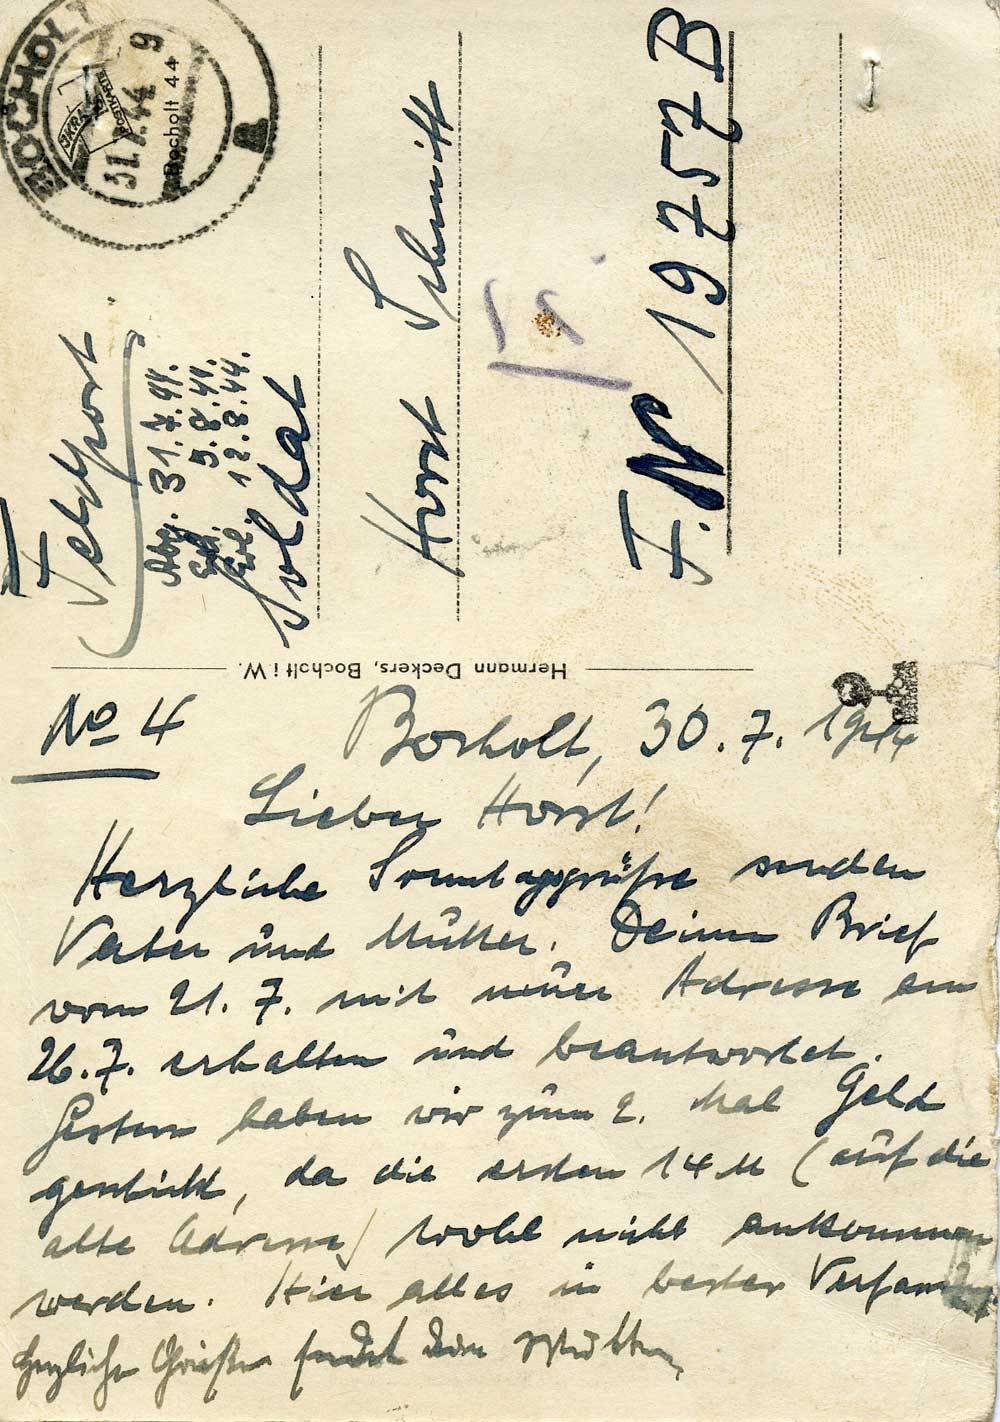 BOCHOLT
31.7.44 9
Bocholt 44
Feldpost
Abg. 31.7.44.
5.8.44.
12.8.44.
Soldat
Horst Schmitt
F. Nr 19757 B
Hermann Deckers, Bocholt i W.
No 4 Bocholt, 30.7.1944
Lieber Horst!
Herzliche Sonntagsgrüße senden
Vater und Mutter. Deinen Brief
vom 21.7. mit neuer Adresse am
26.7. erhalten und beantwortet.
Gestern haben wir zum 2. Mal Geld
geschickt, da die ersten 14 M (auf die
alte Adresse) wohl nicht ankommen
werden. Hier alles in bester Verfassung.
Herzliche Grüße sendet Dein Mutter